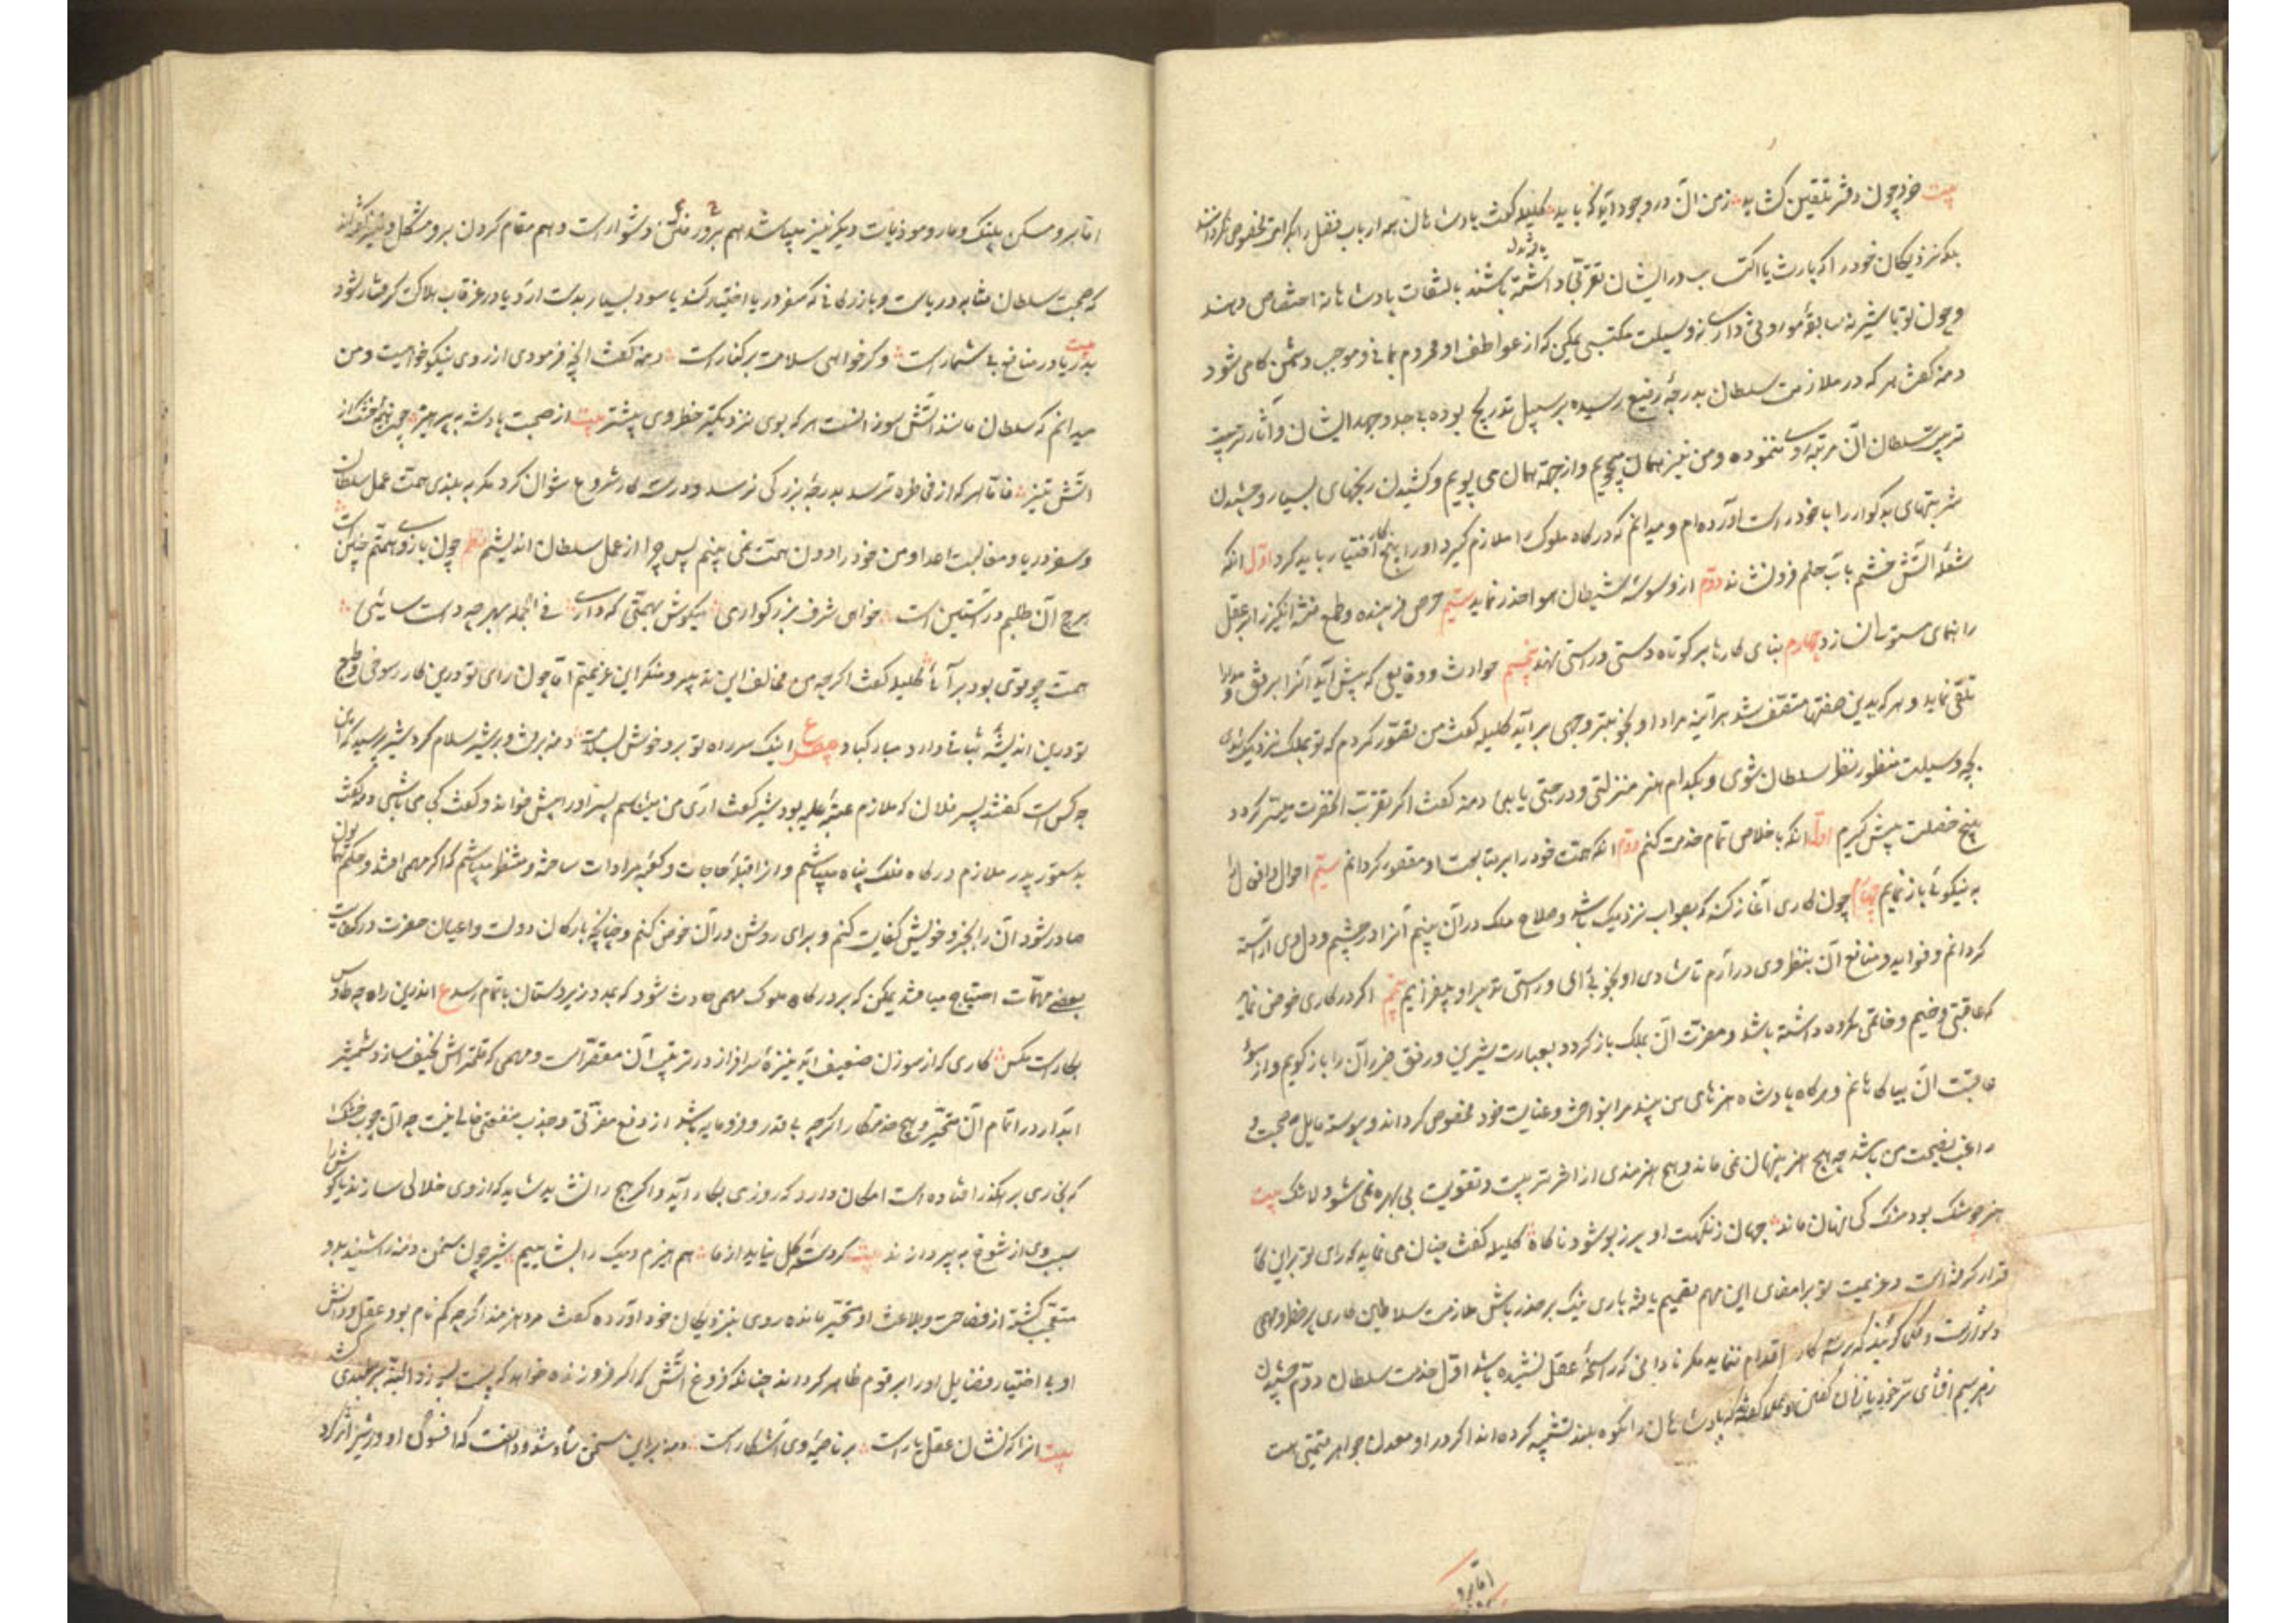 بیت خرد چون دفتر تلقین کشاید ز من آن در وجود آید که باید کلیله گفت پادشاهان همه ارباب فضل را بکرامت مخصوص نگردانند
بلکه نزدیکان خود را که بارث یا اکتساب در ایشان تقربی داشته باشند بالتفات پادشاهانه اختصاص دهند
و چون تو با شیر نه سابقهٔ موروثی داری نه وسیلت مکتسبی یمکن که از عواطف او محروم بمانی و موجب دشمن کامی شود
دمنه گفت هر که در ملازمت سلطان بدرجهٔ رفیع رسیده بر سبیل تدریج بوده بی جد و جهد ایشان و آثار تربیت
تربیت سلطان آن مرتبه روی ننموده و من نیز همان میجویم و از جهة همان می پویم و کشیدن رنجهای بسیار و چشیدن
شربتهای بد کوار را با خود راست آورده ام و میدانم که درگاه ملوک را ملازم گیرد او را پنج کار اختیار باید کرد اول آنکه
شعلهٔ آتش خشم بآب حلم فرو نشاند دوم از وسوسه شیطان هوا حذر نماید سیم حرص فریبنده و طمع فتنه انگیز را بر عقل
راهنمای مستولی نسازد چهارم بنای کارها بر کوتاه دستی و راستی نهد پنجم حوادث و وقایعی که پیش آید آنرا برفق و مدارا
تلقی نماید و هر که بدین صفتها متصف شد هر آینه مراد او بخوبترین وجهی بر آید کلیله گفت من تصور کردم که تو بملک نزدیک شدی
بچه وسیلت منظور نظر سلطان شوی و بکدام هنر منزلتی و درجتی یابی دمنه گفت اگر تقرب آنحضرت میسر گردد
پنج خصلت پیش گیرم اول آنکه باخلاص تمام خدمت کنم دوم آنکه همت خود را بر متابعت او مقصور گردانم سیم احوال و افعال او
به نیکوئی باز نمایم چهارم چون کاری آغاز کند که بصواب نزدیک باشد و صلاح ملک در آن بینم آنرا در چشم و دل وی آراسته
گردانم و فواید و منافع آن بنظر وی در آرم تا شادی او بخوبی رای و راستی تدبیر او بیفزایم پنجم اگر در کاری خوض نماید
که عاقبتی وخیم و خاتمتی مکروه داشته باشد و مضرت آن بملک باز گردد بعبارت شیرین و رفق ضرر آن را باز گویم و از سوء
عاقبت آن بیاگاهانم و هرگاه پادشاه هنرهای من بیند مرا بنواخت و عنایت خود مخصوص گرداند و پیوسته مایل صحبت و
راغب نصیحت من باشد چه هیچ هنر پنهان نمی ماند و هیچ هنرمندی از اثر تربیت و تقویت بی بهره نمی شود لاشک بیت
هنر چو مشک بود مشک کی نهان ماند جهان ز نکهت او پر ز بو شود ناگاه کلیله گفت چنان می نماید که رای تو براین
قرار گرفته است و عزیمت تو بر امضای این مهم تصمیم یافته باری نیک بر حذر باش ملازمت سلاطین کاری پر خطر و مهمی
دشوارست و حکما گویند که بر سه کار اقدام ننماید مگر نادانی که رایحهٔ عقل نشنیده باشد اول خدمت سلطان دوم چشیدن
زهر سیم افشای سر خود با زنان گفتن و علما گفته اند که پادشاهان را بکوه بلند تشبیه کرده اند اگر در او معدن جواهر قیمتی است
اما برو
اما برو مسکن پلنگ و مار و موذیات دیگر نیز میباشد هم برو رفتن دشوار است و هم مقام کردن برو مشکل و نیز گفته اند
که صحبت سلطان مشابه دریاست و بازرگانی که سفر دریا اختیار کند یا سود بسیار بدست آرد یا در غرقاب هلاکت گرفتار شود
بیت بدریا در منافع بی شمار است و گر خواهی سلامت بر کنار است دمنه گفت آنچه فرمودی از روی نیکو خواهیست و من
میدانم که سلطان مانند آتش سوزانست هر که بوی نزدیکتر خطر وی بیشتر بیت از صحبت پادشه به پرهیز چون هیزم خشک از
آتش تیز فاما هر که از مخاطره ترسد بدرجهٔ بزرگی نرسد و در سه کار شروع نتوان کرد مگر به بلندی همت عمل سلطان
و سفر دریا و مغالبت اعدا و من خود را دون همت نمی بینم پس چرا از عمل سلطان اندیشم نظم چون بازوی همتم چنین است
هرچ آن طلبم در آستین است خواهی شرف بزرگواری میکوش بهمتی که داری فی الجمله بهر چه دست سائی
همت چو قوی بود بر آئی کلیله گفت اگرچه من مخالف این تدبیر و منکر این عزیمتم اما چون رای تو درین کار رسوخی و طبع
تو درین اندیشه ثباتی دارد مبارک باد مصرع اینک سر راه تو برو خوش بسلامت دمنه برفت و بر شیر سلام کرد شیر پرسید که این
چه کس است گفتند پسر فلان که ملازم عتبهٔ علیه بود شیر گفت آری من میشناسم پس او را پیش خواند و گفت کجا می باشی دمنه گفت
بدستور پدر ملازم درگاه فلک پناه میباشم و آنرا قبلهٔ حاجات و کعبهٔ مرادات ساخته و منتظر میباشم که اگر مهمی افتد و حکم همایون
صادر شود آن را بخرد خویش کفایت کنم و برای روشن در آن خوض کنم و چنانچه بارکان دولت و اعیان حضرت در کفایت
بعضی مهمات احتیاج میافتد یمکن که بر درگاه ملوک مهمی حادث شود که بمدد زیردستان باتمام رسد ع اندرین راه چه طاوس
بکارست مگس کاری که از سوزن ضعیف آید نیزهٔ سرافراز در ترتیب آن مقصرست و مهمی که قلمتراش نحیف سازد شمشیر
آبدار در اتمام آن متحیر و هیچ خدمتکار اگرچه بی قدر و فرومایه باشد از دفع مضرتی و جذب منفعتی خالی نیست چه آن چوب خشک
که بخواری بر رهگذر افتاده است امکان دارد که روزی بکار آید و اگر هیچ را نشاید شاید که از وی خلالی سازند یا گوش را
بسبب وی از شوخ به پردازند بیت گر دستهٔ گل نیاید از ما هم هیزم دیگ را بشاییم شیر چون سخن دمنه را شنید بدو
متعجب گشته از فصاحت و بلاغت او متحیر مانده روی بنزدیکان خود آورده گفت مرد هنرمند اگرچه کم نام بود عقل و دانش
او بی اختیار فضایل او را بر قوم ظاهر گرداند چنانکه فروغ آتش که اگر فروزنده خواهد که پست بسوزد البته بر بلندی کشد
بیت آنرا که نشان عقل یارست بر ناصیهٔ وی آشکارست دمنه براین سخن شاد شد و دانست که افسون او در شیر اثر کرد